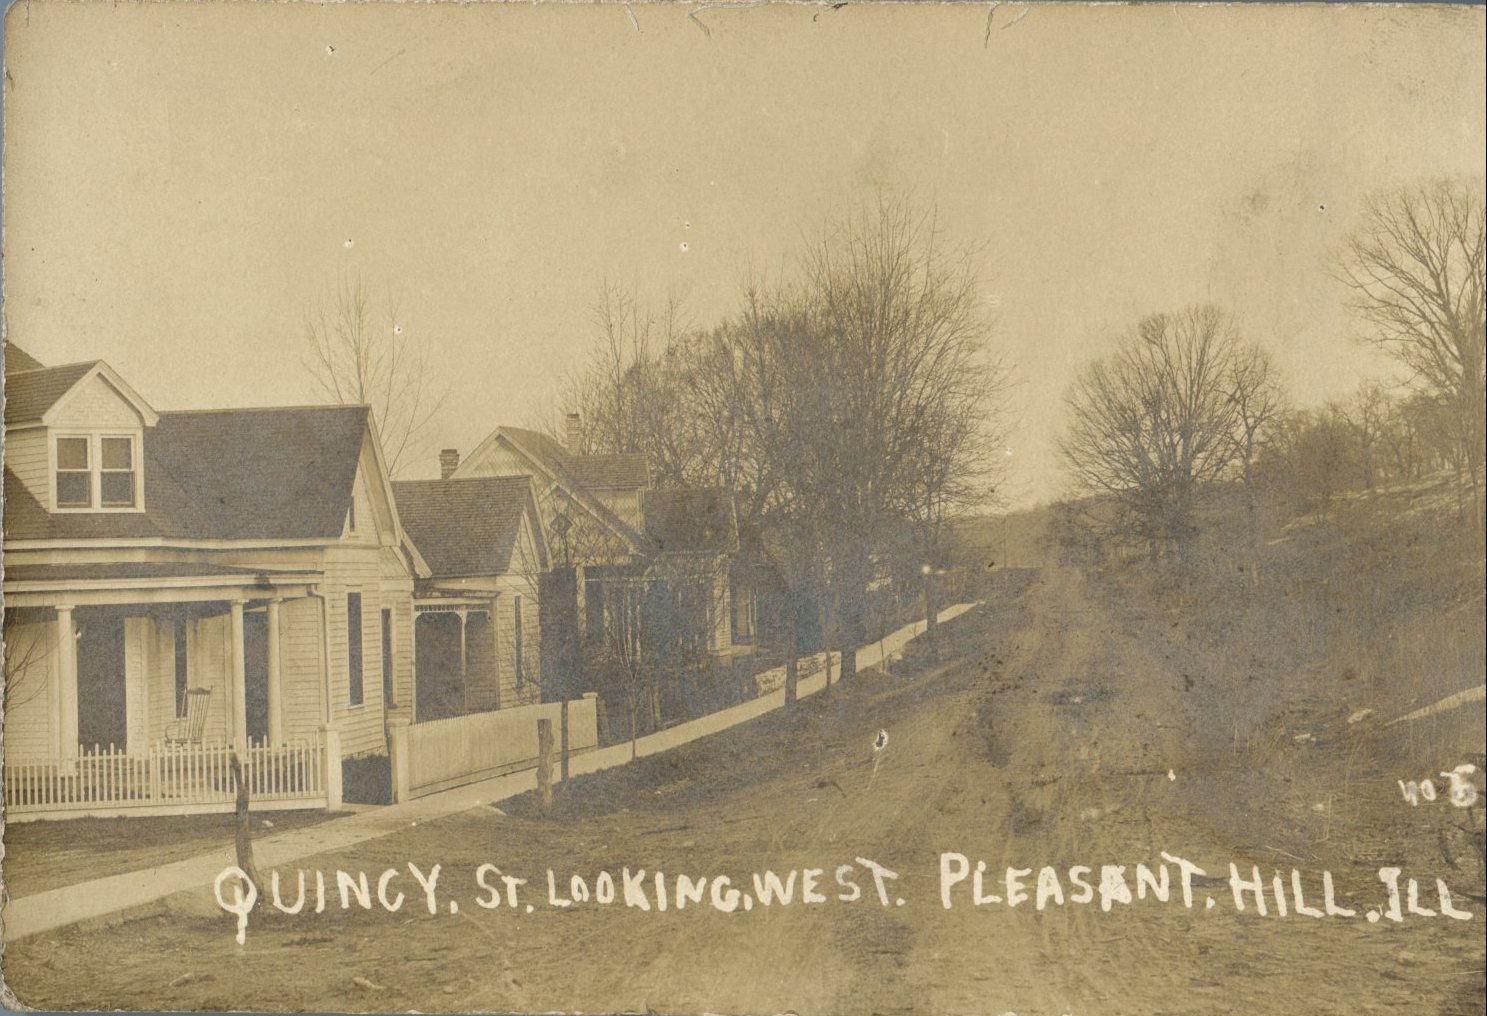 no 5
QUINCY. ST. LOOKING. WEST. PLEASANT. HILL. ILL